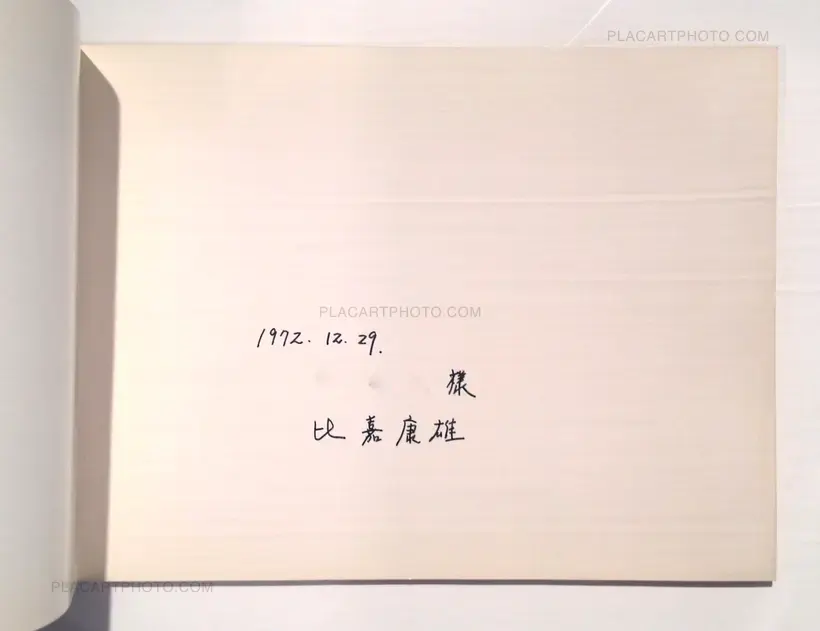 PLACARTPHOTO COM
PLACARTPHOTO.COM
1972. 12. 29.
様
比嘉康雄
PLACARTPHOTO.COM